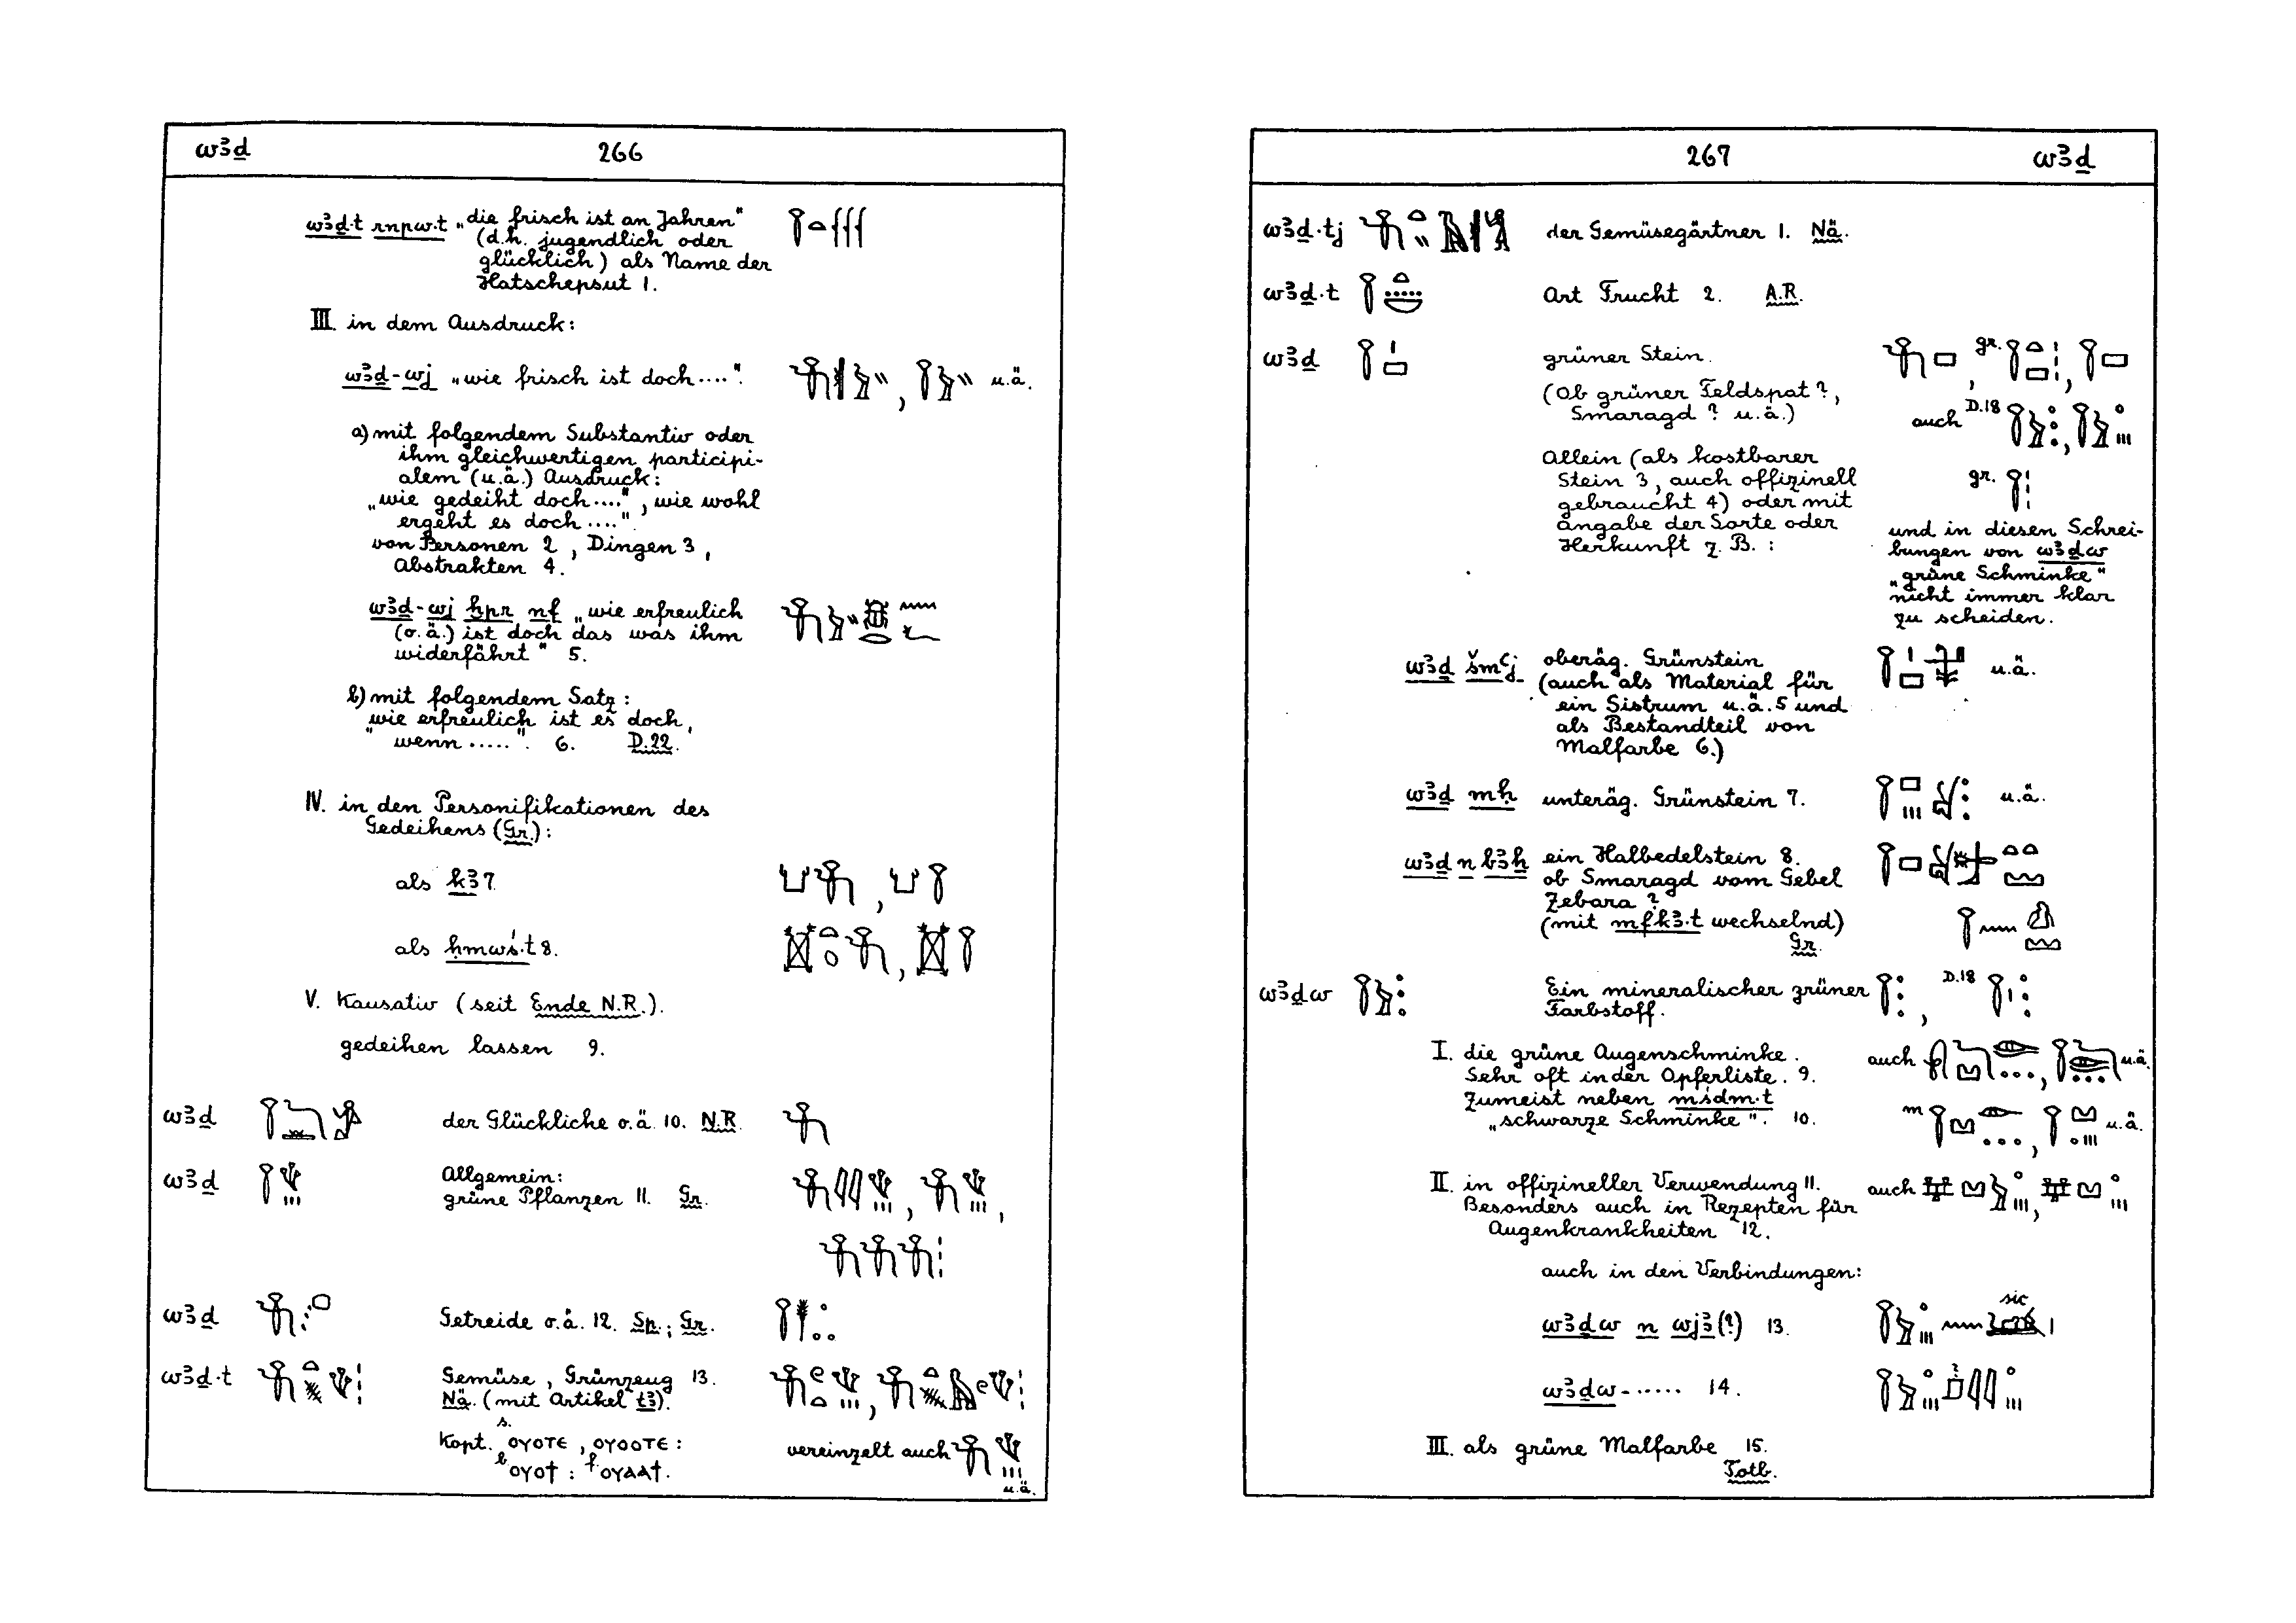 wꜣḏ 266
wꜣḏ·t rnpw·t „die frisch ist an Jahren"
(d.h. jugendlich oder
glücklich) als Name der
Hatschepsut 1.
III. in dem Ausdruck:
wꜣḏ-wj „wie frisch ist doch....". u.ä.
a) mit folgendem Substantiv oder
ihm gleichwertigen participi-
alem (u.ä.) Ausdruck:
„wie gedeiht doch....", wie wohl
ergeht es doch....".
von Personen 2, Dingen 3,
Abstrakten 4.
wꜣḏ-wj ḫpr nf „wie erfreulich
(o.ä.) ist doch das was ihm
widerfährt" 5.
b) mit folgendem Satz:
„wie erfreulich ist es doch,
wenn.....". 6. D.22.
IV. in den Personifikationen des
Gedeihens (Gr.):
als kꜣ 7.
als ḥmwś·t 8.
V. Kausativ (seit Ende N.R.).
gedeihen lassen 9.
wꜣḏ der Glückliche o.ä. 10. N.R.
wꜣḏ Allgemein:
grüne Pflanzen 11. Gr.
wꜣḏ Getreide o.ä. 12. Sp.; Gr.
wꜣḏ·t Gemüse, Grünzeug 13.
Nä. (mit Artikel tꜣ).
Kopt. s. ⲟⲩⲟⲧⲉ, ⲟⲩⲟⲟⲧⲉ: vereinzelt auch
b ⲟⲩⲟϯ: f. ⲟⲩⲁⲁϯ. u.ä.
267 wꜣḏ
wꜣḏ·tj der Gemüsegärtner 1. Nä.
wꜣḏ·t Art Frucht 2. A.R.
wꜣḏ grüner Stein. gr.
(Ob grüner Feldspat?,
Smaragd? u.ä.) auch D.18
Allein (als kostbarer
Stein 3, auch offizinell gr.
gebraucht 4) oder mit
Angabe der Sorte oder
Herkunft z.B.:
und in diesen Schrei-
bungen von wꜣḏw
„grüne Schminke"
nicht immer klar
zu scheiden.
wꜣḏ šmꜥj oberäg. Grünstein u.ä.
(auch als Material für
ein Sistrum u.ä. 5 und
als Bestandteil von
Malfarbe 6.)
wꜣḏ mḥ unteräg. Grünstein 7. u.ä.
wꜣḏ n bꜣḫ ein Halbedelstein 8.
ob Smaragd vom Gebel
Zebara?
(mit mfkꜣ·t wechselnd)
Gr.
wꜣḏw Ein mineralischer grüner D.18
Farbstoff.
I. die grüne Augenschminke. auch u.ä.
Sehr oft in der Opferliste. 9.
Zumeist neben mśdm·t
„schwarze Schminke". 10. m u.ä.
II. in offizineller Verwendung 11. auch
Besonders auch in Rezepten für
Augenkrankheiten 12.
auch in den Verbindungen:
sic
wꜣḏw n wjꜣ(?) 13.
wꜣḏw-...... 14.
III. als grüne Malfarbe 15.
Totb.